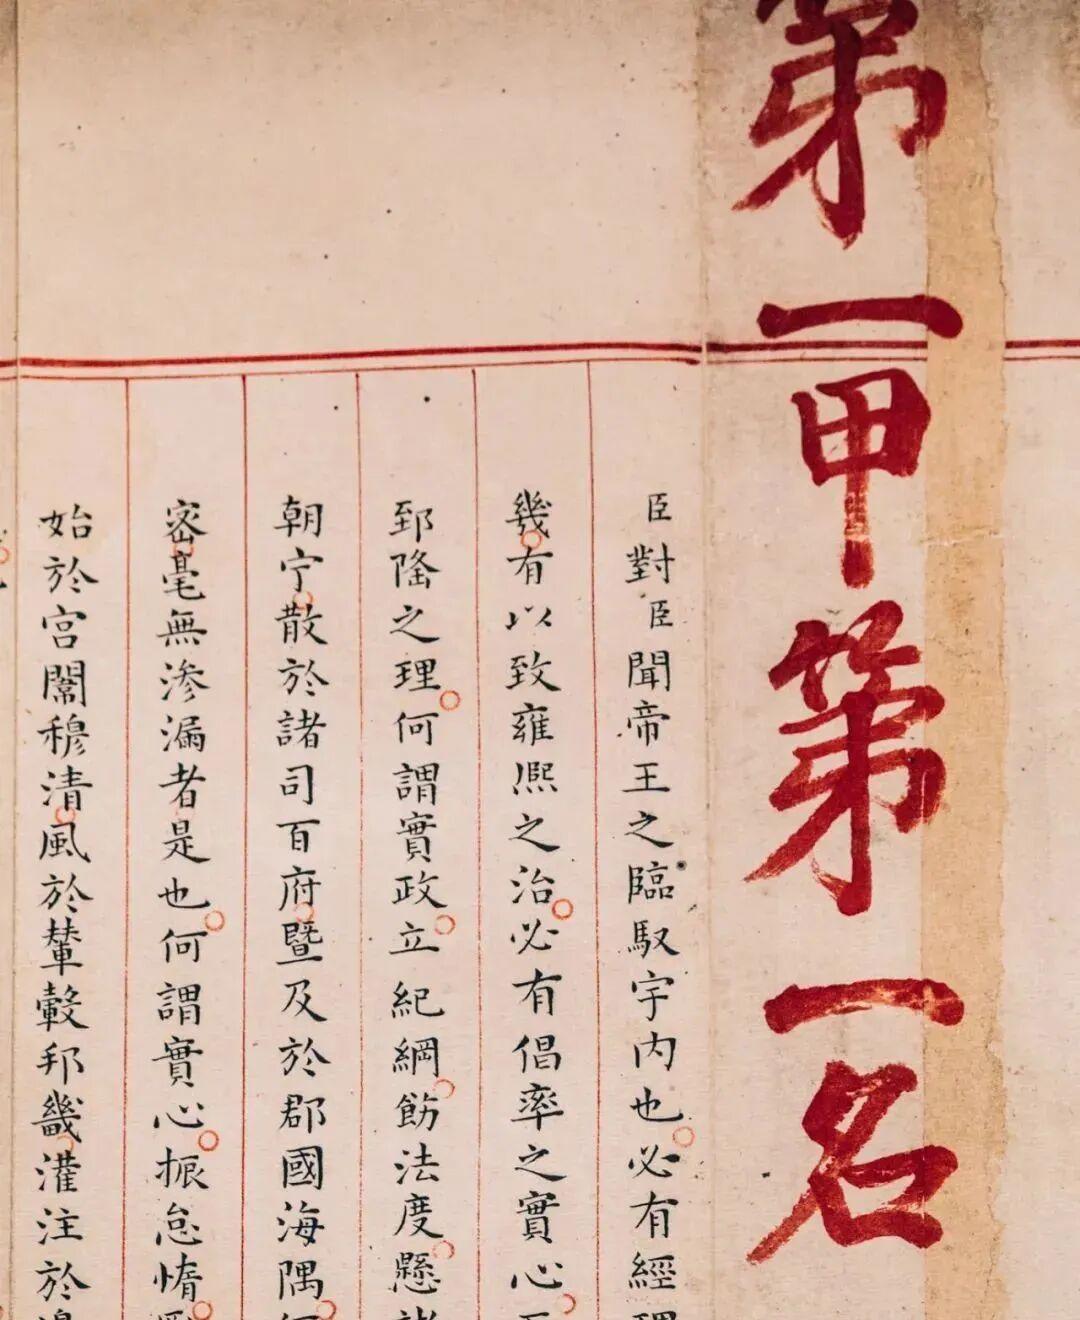 第一甲第一名
臣對臣聞帝王之臨馭宇内也必有經理
幾有以致雍熙之治必有倡率之實心
郅隆之理何謂實政立紀綱飭法度懸諸
朝宁散於諸司百府暨及於郡國海隅
宻毫無渗漏者是也何謂實心振怠惰
始於宮闈穆清風於輦轂邦畿灌注於邊